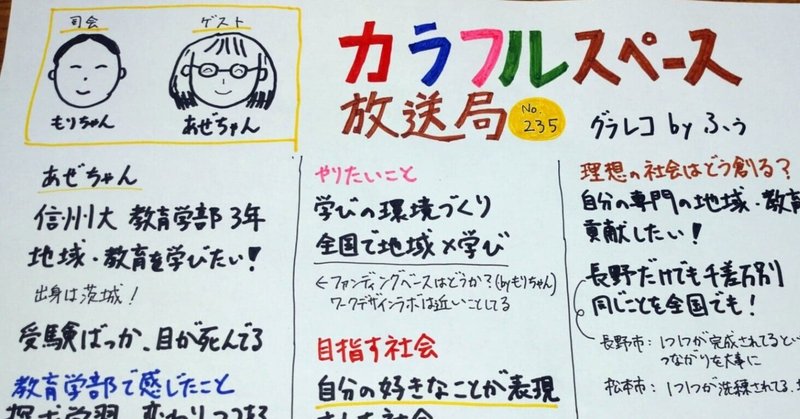 司会
ゲスト
もりちゃん
あぜちゃん
カラフルスペース
放送局
No.
235
グラレコ by ふぅ
あぜちゃん
信州大 教育学部 3年
地域・教育を学びたい!
出身は茨城!
受験ばっか、目が死んでる
教育学部で感じたこと
探求学習
やりたいこと
学びの環境づくり
全国で地域×学び
←ファンディングベースはどうか?(byもりちゃん)
ワークデザインラボは近いことしてる
目指す社会
自分の好きなことが表現
理想の社会はどう創る?
自分の専門の地域・教育
貢献したい!
長野だけでも千差万別
同じことを全国でも!
長野市:1つ1つが完成されてると
つながりを大事に
松本市:1つ1つが洗練されてる